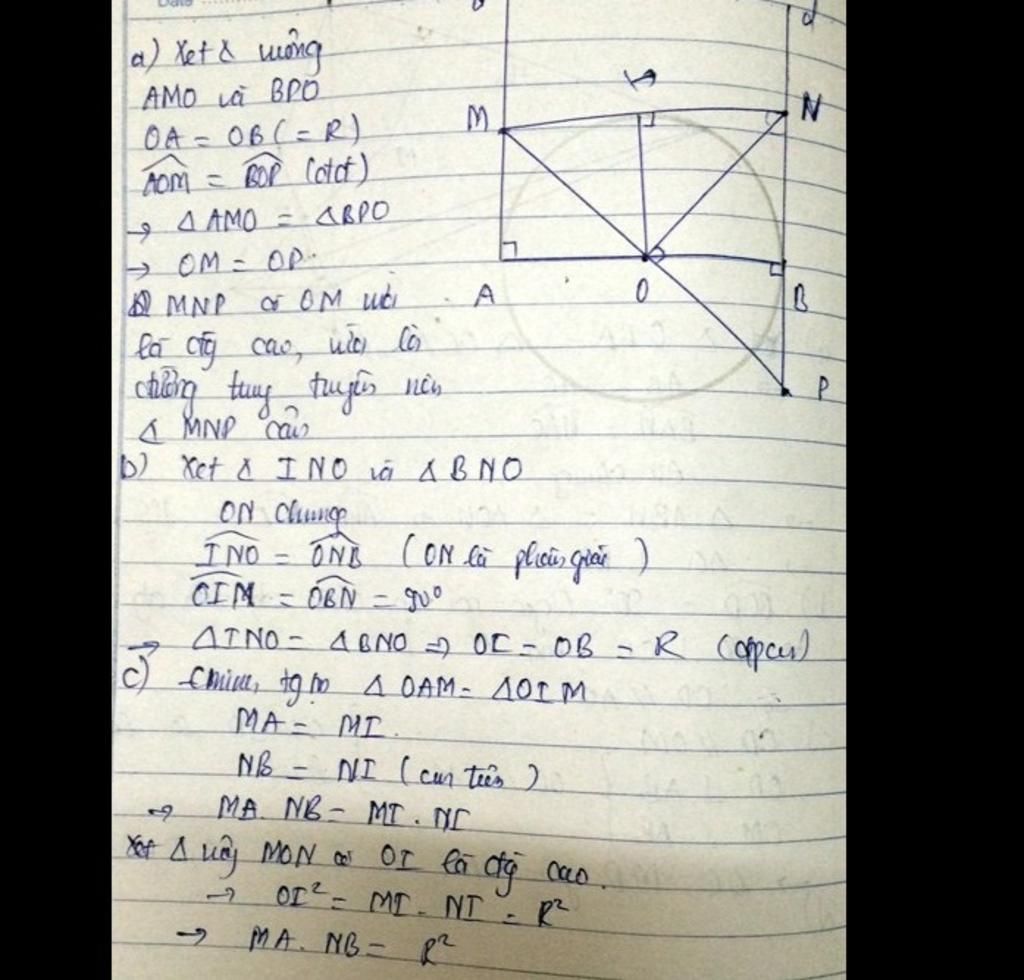 Date
d
a) Xét Δ vuông
AMO và BPO
M
I
N
OA = OB (= R)
AOM = BOP (đđ)
→ Δ AMO = Δ BPO
→ OM = OP.
A
O
B
Δ MNP có OM vừa
là đg cao, vừa là
P
đường trung tuyến nên
Δ MNP cân
b) Xét Δ INO và Δ BNO
ON chung
INO = ONB (ON là phân giác)
OIM = OBN = 90°
→ ΔINO = ΔBNO ⇒ OI = OB = R
c) Δ OAM = ΔOIM
MA = MI.
NB = NI
→ MA. NB = MI. NI
Xét Δ MON có OI là đg cao.
→ OI² = MI. NI = R²
→ MA. NB = R²